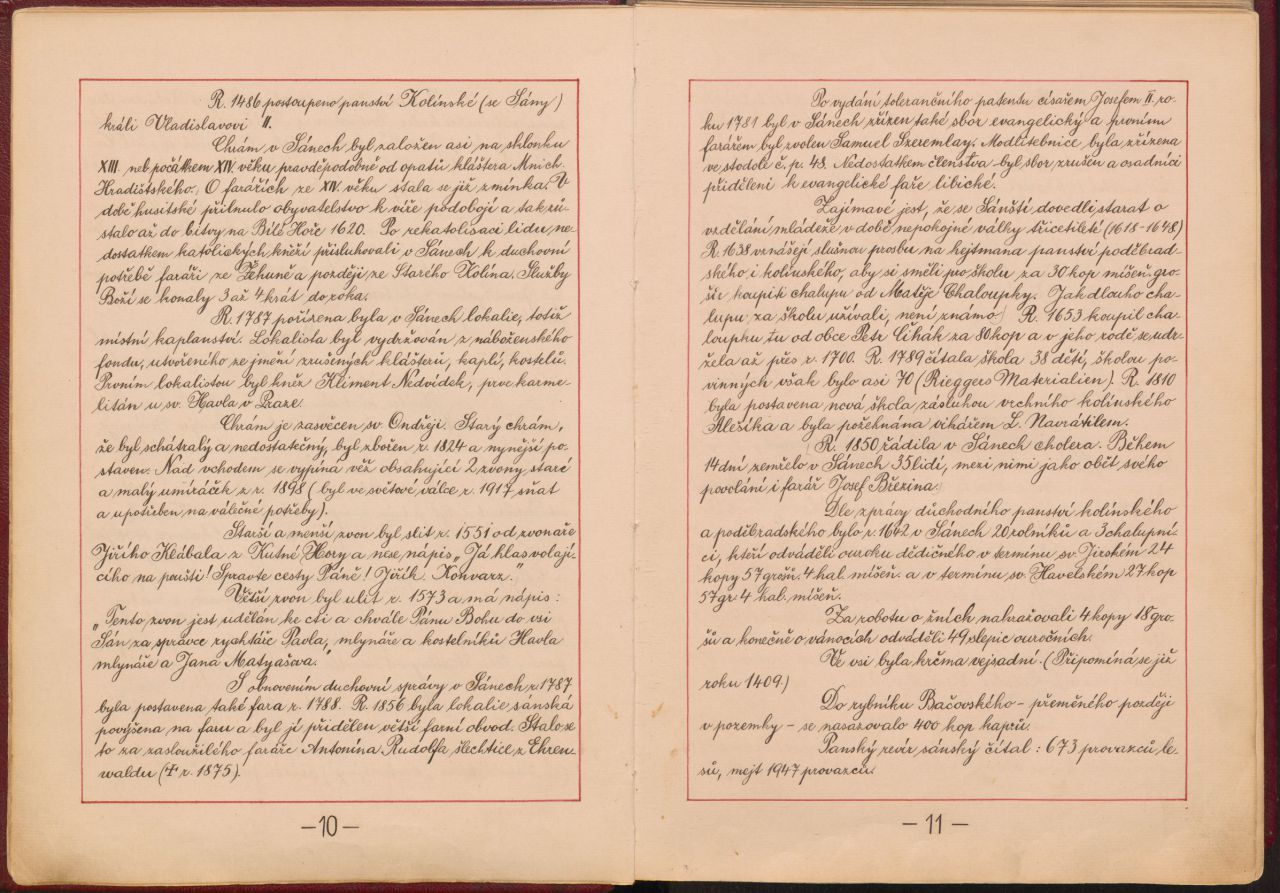 R. 1486 postoupeno panství Kolínské (se Sány)
králi Vladislavovi II.
Chrám v Sánech byl založen asi na sklonku
XIII. neb počátkem XIV. věku pravděpodobně od opatů kláštera Mnich.
Hradištského. O farářích ze XIV. věku stala se již zmínka. V
době husitské přilnulo obyvatelstvo k víře podobojí a tak zů-
stalo až do bitvy na Bílé Hoře 1620. Po rekatolisaci lidu ne-
dostatkem katolických kněží přisluhovali v Sánech k duchovní
potřebě faráři ze Žehuně a později ze Starého Kolína. Služby
Boží se konaly 3 až 4 krát do roka.
R. 1787 pořízena byla v Sánech lokalie, totiž
místní kaplanství. Lokalista byl vydržován z náboženského
fondu, utvořeného ze jmění zrušených klášterů, kaplí, kostelů.
Prvním lokalistou byl kněz Kliment Nedvídek, prve karme-
litán u sv. Havla v Praze.
Chrám je zasvěcen sv. Ondřeji. Starý chrám,
že byl schátralý a nedostatečný, byl zbořen r. 1824 a nynější po-
staven. Nad vchodem se vypíná věž obsahující 2 zvony staré
a malý umíráček z r. 1898 (byl ve světové válce r. 1917 sňat
a upotřeben na válečné potřeby).
Starší a menší zvon byl slit r. 1551 od zvonaře
Jiřího Klábala z Kutné Hory a nese nápis „Já klas volají-
cího na poušti! Spravte cesty Páně! Jiřík. Konvarz."
Větší zvon byl ulit r. 1573 a má nápis:
„Tento zvon jest udělán ke cti a chvále Pánu Bohu do vsi
Sán za správce rychtáře Pavla, mlynáře a kostelníků Havla
mlynáře a Jana Matyášova."
S obnovením duchovní správy v Sánech r. 1787
byla postavena také fara r. 1788. R. 1856 byla lokalie sánská
povýšena na faru a byl jí přidělen větší farní obvod. Stalo se
to za zasloužilého faráře Antonína Rudolfa šlechtice z Ehren-
waldu († r. 1875).
–10–
Po vydání tolerančního patentu císařem Josefem II. ro-
ku 1781 byl v Sánech zřízen také sbor evangelický a prvním
farářem byl zvolen Samuel Szeremlay. Modlitebnice byla zřízena
ve stodole č. p. 48. Nedostatkem členstva byl sbor zrušen a osadníci
přiděleni k evangelické faře libické.
Zajímavé jest, že se Sánští dovedli starat o
vzdělání mládeže v době nepokojné války třicetileté (1618–1648)
R. 1638 vznášejí slušnou prosbu na hejtmana panství poděbrad-
ského i kolínského, aby si směli pro školu za 30 kop míšeň. gro-
šů koupiti chalupu od Matěje Chaloupky. Jak dlouho cha-
lupu za školu užívali, není známo. R. 1653 koupil cha-
loupku tu od obce Petr Čihák za 80 kop a v jeho rodě se udr-
žela až přes r. 1700. R. 1789 čítala škola 38 dětí, školou po-
vinných však bylo asi 70 (Rieggers Materialien). R. 1810
byla postavena nová škola zásluhou vrchního kolínského
Alešíka a byla požehnána vikářem L. Navrátilem.
R. 1850 řádila v Sánech cholera. Během
14 dní zemřelo v Sánech 35 lidí, mezi nimi jako oběť svého
povolání i farář Josef Březina.
Dle zprávy důchodního panství kolínského
a poděbradského bylo r. 1642 v Sánech 20 rolníků a 3 chalupní-
ci, kteří odváděli ouroku dědičného v termínu sv. Jirském 24
kopy 57 grošů 4 hal. míšeň. a v termínu sv. Havelském 27 kop
57 gr. 4 hal. míšeň.
Za robotu o žních nahražovali 4 kopy 18 gro-
šů a konečně o vánocích odváděli 49 slepic ouročních.
Ve vsi byla krčma vejsadní. (Připomíná se již
roku 1409.)
Do rybníku Bačovského – přeměného později
v pozemky – se nasazovalo 400 kop kaprů.
Panský revír sánský čítal: 673 provazců le-
sů, mejt 1947 provazců.
–11–